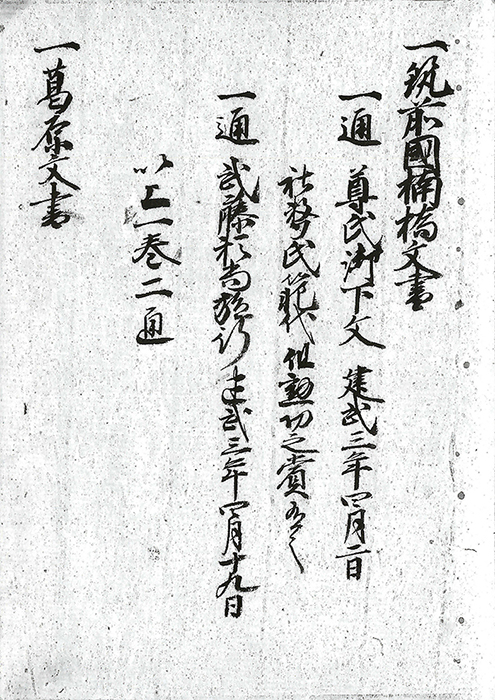 一筑前國楠橋文書
一通 尊氏御下文 建武三年四月二日
社務氏範代 但勲功之賞
一通 武藤 施行 建武三年四月十九日
以上一巻二通
一葛原文書